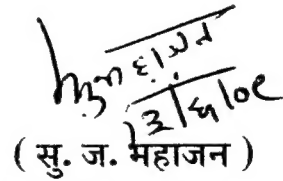 ३/६/०९
( सु. ज. महाजन )